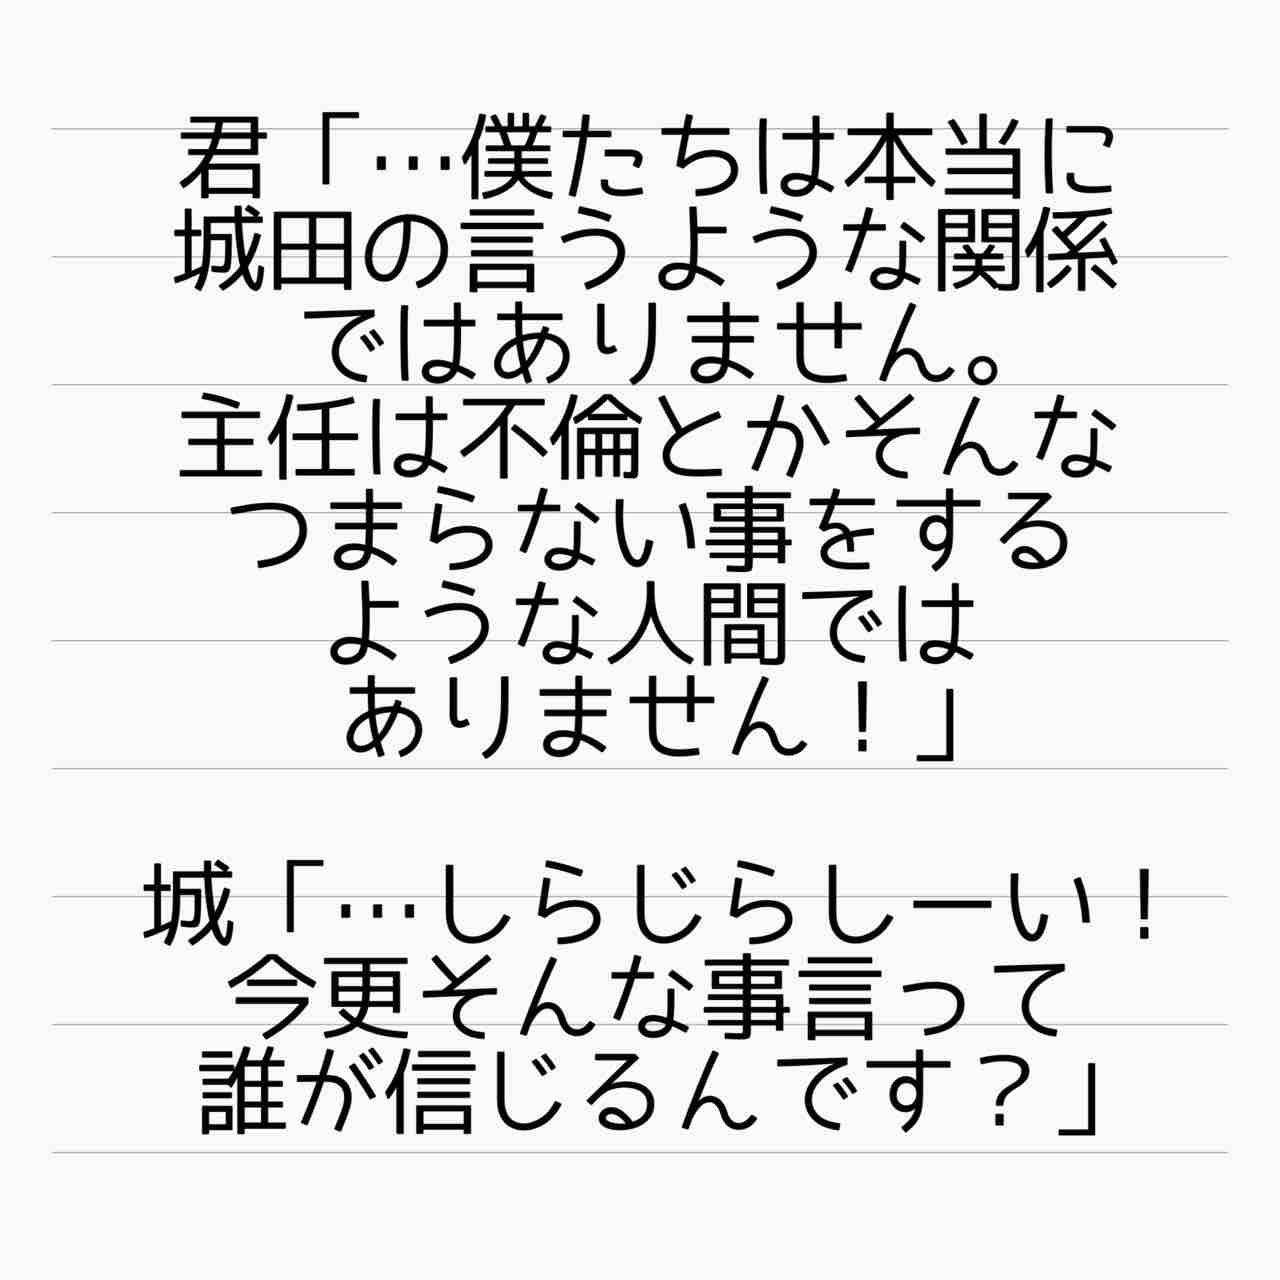 君「…僕たちは本当に
城田の言うような関係
ではありません。
主任は不倫とかそんな
つまらない事をする
ような人間では
ありません！」
城「…しらじらしーい！
今更そんな事言って
誰が信じるんです？」